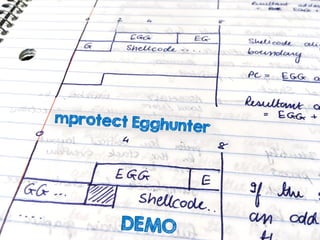 Resultant addr
2 4 8
EGG EG
G Shellcode ....
Shellcode ali
boundary
PC = EGG a
Resultant a
= EGG +
mprotect Egghunter
0 4 8
EGG E
GG ... Shellcode..
If the
an odd
....
DEMO